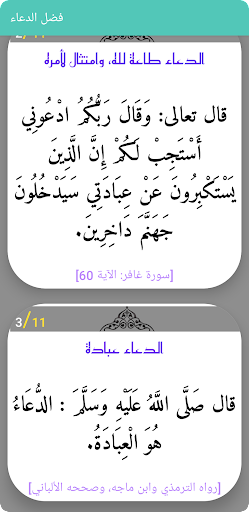 فضل الدعاء
2/11
الدعاء طاعة لله، وامتثال لأمره
قال تعالى: وَقَالَ رَبُّكُمُ ادْعُونِي
أَسْتَجِبْ لَكُمْ إِنَّ الَّذِينَ
يَسْتَكْبِرُونَ عَنْ عِبَادَتِي سَيَدْخُلُونَ
جَهَنَّمَ دَاخِرِينَ.
[سورة غافر: الآية 60]
3/11
الدعاء عبادة
قال صَلَّى اللَّهُ عَلَيْهِ وَسَلَّمَ : الدُّعَاءُ
هُوَ الْعِبَادَةُ.
[رواه الترمذي وابن ماجه، وصححه الألباني]